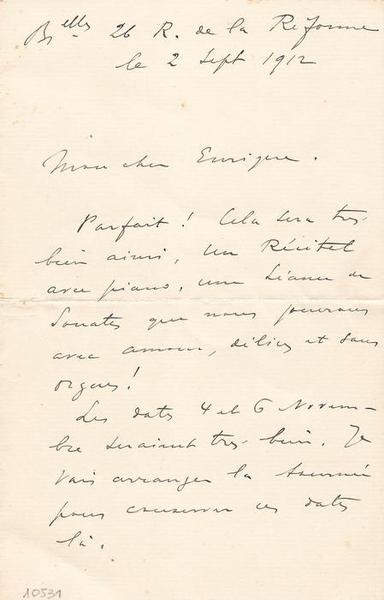 Blles 26 R. de la Réforme
le 2 Sept 1912
Mon cher Enrique.
Parfait! Cela sera très
bien ainsi, un Récital
avec piano, une séance de
Sonates que nous jouerons
avec amour, délices et sans
orgues!
Les dates 4 et 6 Novem-
bre seraient très bien. Je
vais arranger la tournée
pour conserver ces dates
là.
10531